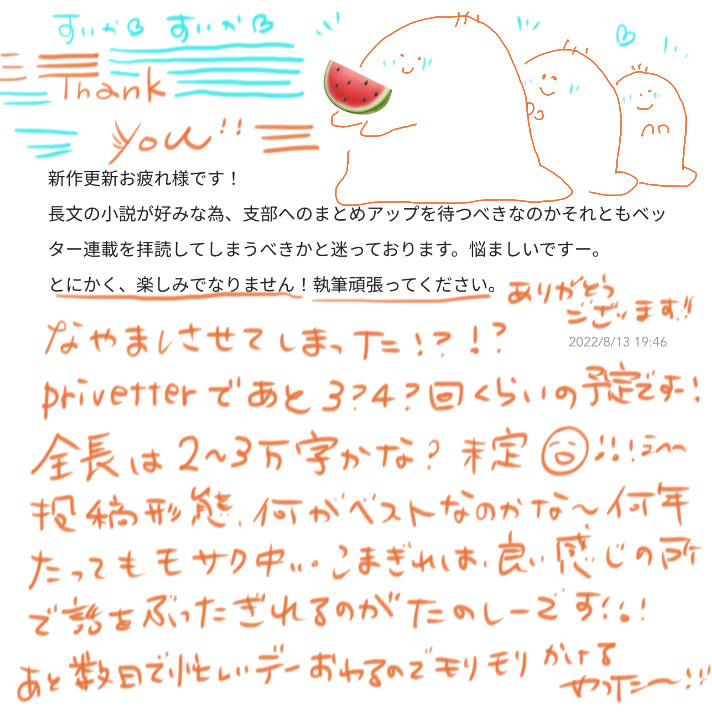 すいかB すいかB
Thank
you!!
新作更新お疲れ様です！
長文の小説が好みな為、支部へのまとめアップを待つべきなのかそれともベッ
ター連載を拝読してしまうべきかと迷っております。悩ましいですー。
とにかく、楽しみでなりません！執筆頑張ってください。
ありがとう
ございます!!
なやましさせてしまった!?!?
2022/8/13 19:46
privetterであと3?4?回くらいの予定ですー!
全長は2～3万字かな? 未定
投稿形態、何がベストなのかな～何年
たってもモサク中… こまぎれは、良い感じの所
で話をぶったぎれるのがたのしーです!
あと数日で忙しいデーおわるのでモリモリ かける
やったー!!